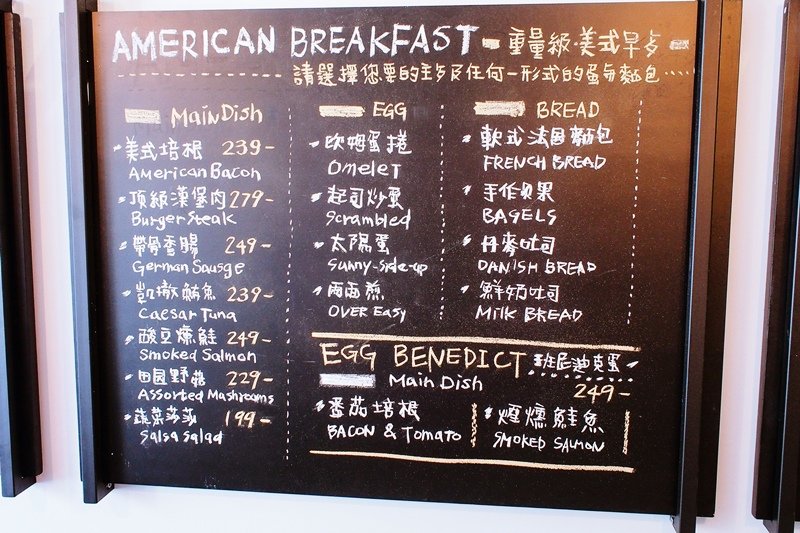 AMERICAN BREAKFAST - 重量級·美式早
請選擇您要的主 及任何一形式的蛋與麵包
Main Dish
美式培根 239-
American Bacon
頂級漢堡肉 279-
Burger Steak
帶骨香腸 249-
German Sausge
凱撒鮪魚 239-
Caesar Tuna
酸豆燻鮭 249-
Smoked Salmon
田園野菇 229-
Assorted Mashrooms
蔬菜莎莎 199-
Salsa Salad
EGG
歐姆蛋捲
Omelet
起司炒蛋
Scrambled
太陽蛋
Sunny-side-up
兩面煎
OVER Easy
BREAD
軟式法國麵包
FRENCH BREAD
手作貝果
BAGELS
丹麥吐司
DANISH BREAD
鮮奶吐司
Milk BREAD
EGG BENEDICT 班尼迪克蛋
249-
Main Dish
番茄培根
BACON & Tomato
煙燻鮭魚
SMOKED SALMON